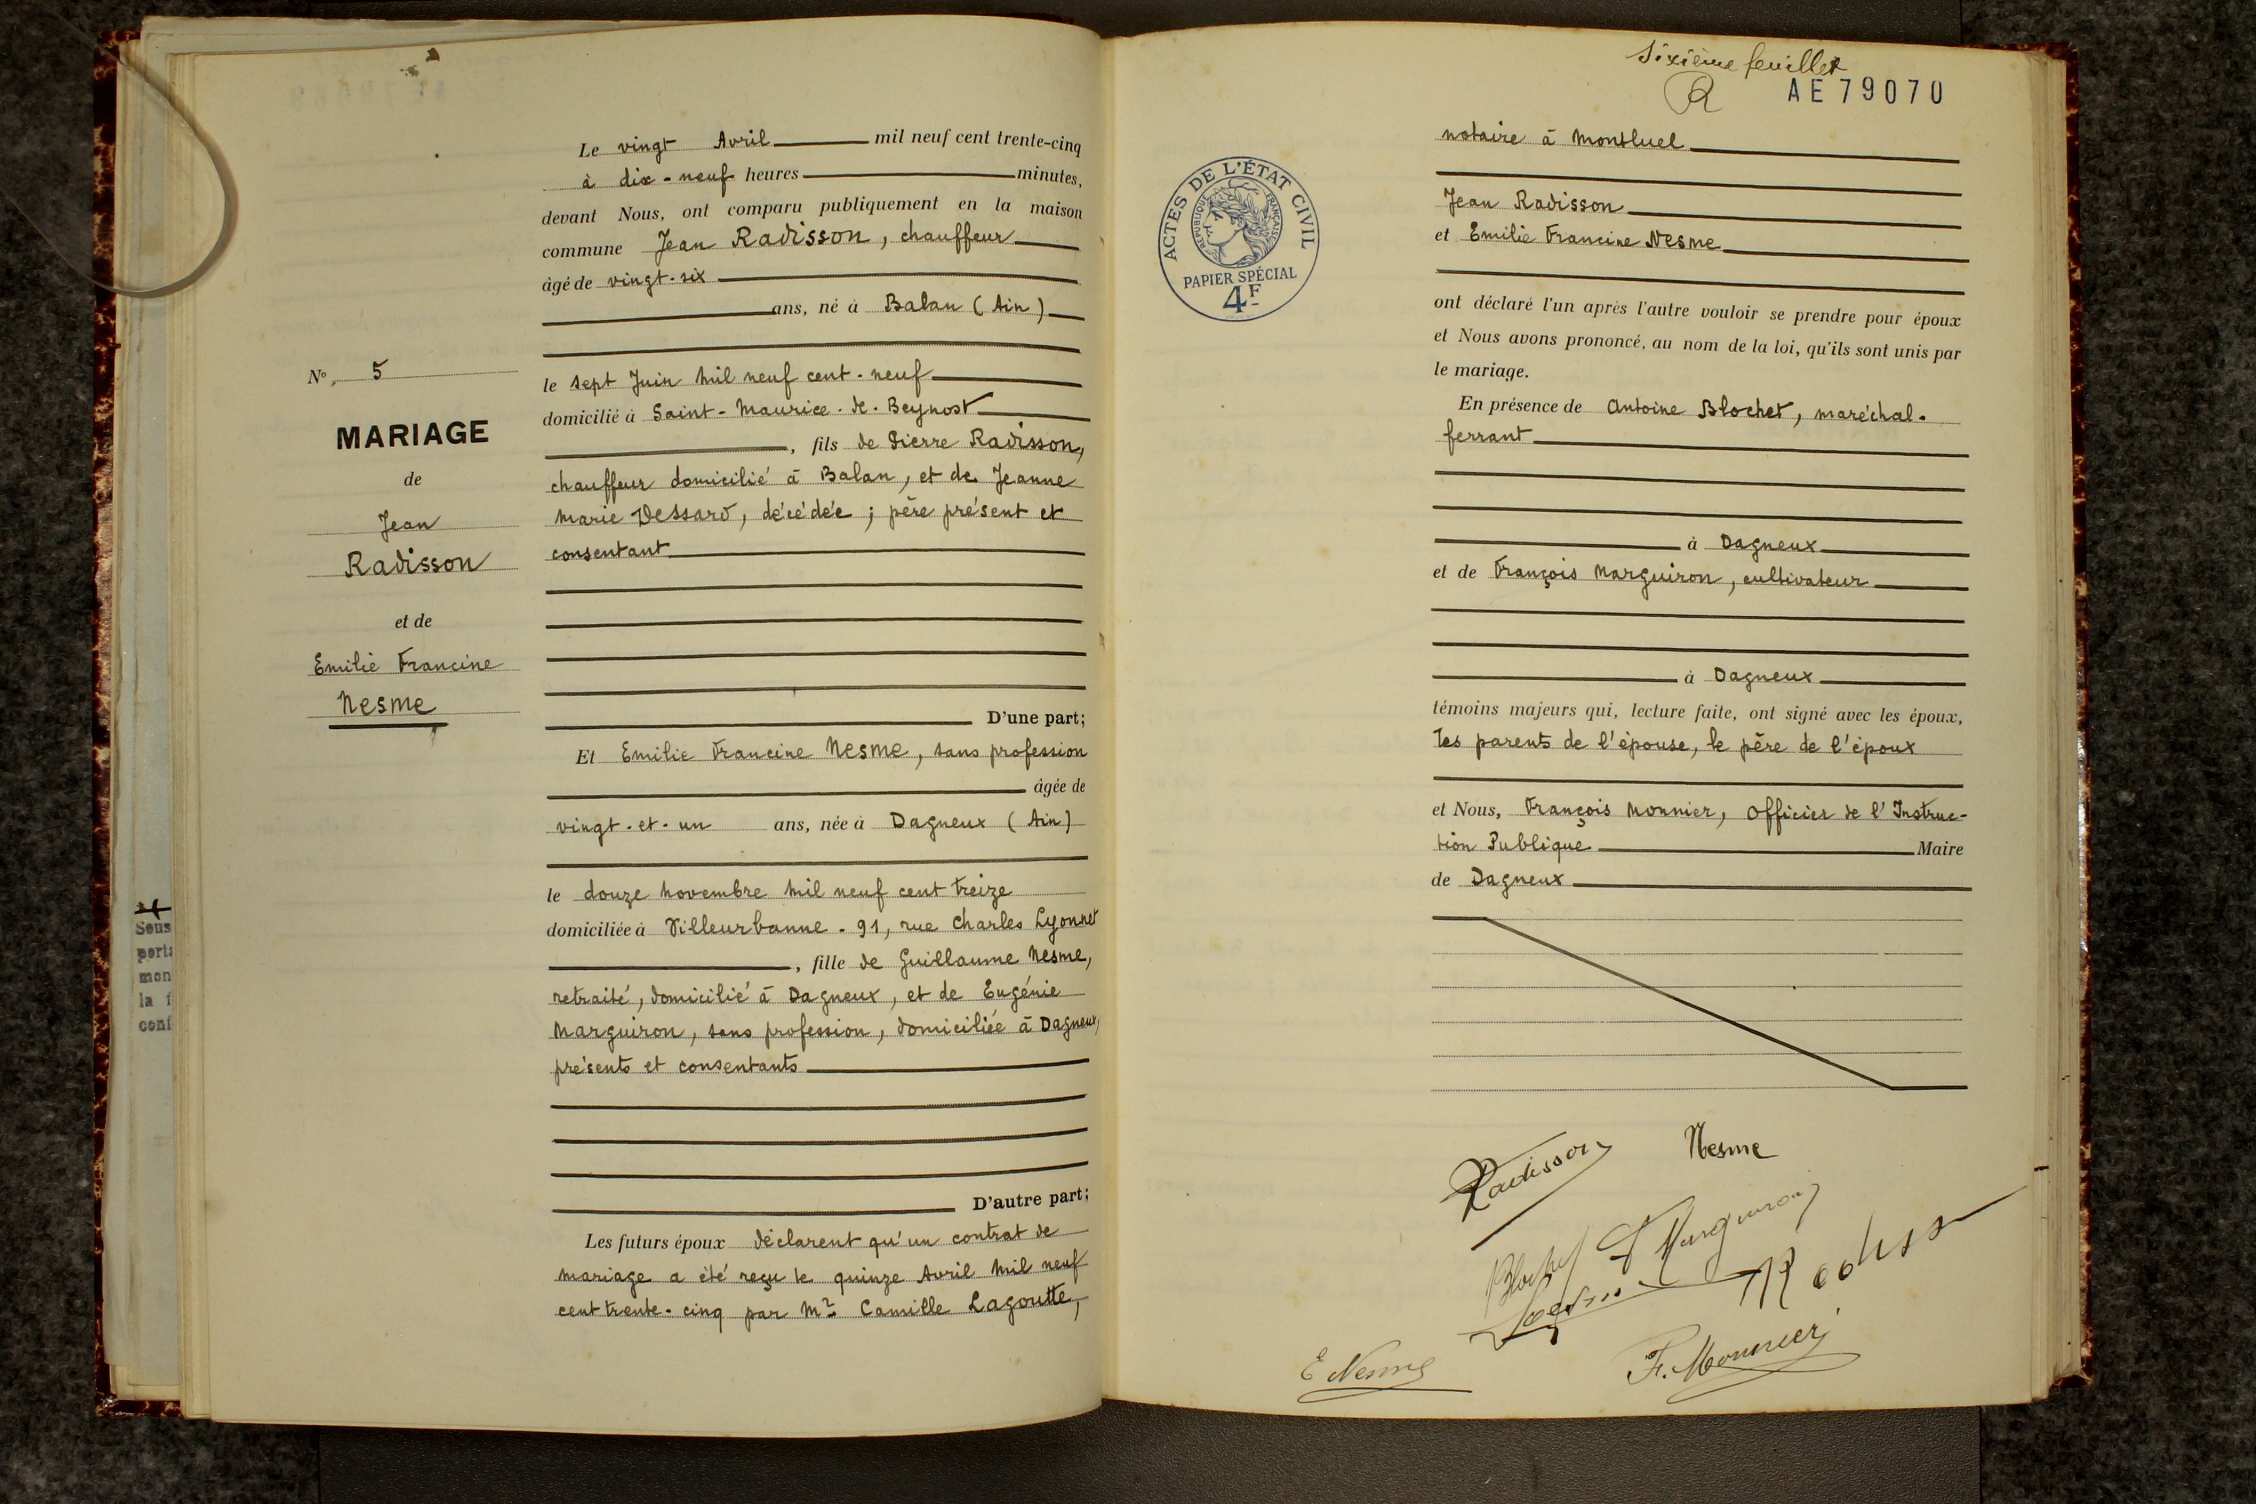 Le vingt Avril mil neuf cent trente-cinq
à dix-neuf heures minutes,
devant Nous, ont comparu publiquement en la maison
commune Jean Radisson, chauffeur
âgé de vingt-six
ans, né à Balan (Ain)
le sept Juin mil neuf cent-neuf
domicilié à Saint-Maurice-de-Beynost
, fils de Pierre Radisson,
chauffeur domicilié à Balan, et de Jeanne
Marie Dessard, décédée ; père présent et
consentant
D'une part;
Et Emilie Francine Nesme, sans profession
âgée de
vingt-et-un ans, née à Dagneux (Ain)
le douze novembre mil neuf cent treize
domiciliée à Villeurbanne - 91, rue Charles Lyonnet
, fille de Guillaume Nesme,
retraité, domicilié à Dagneux, et de Eugénie
Marguiron, sans profession, domiciliée à Dagneux,
présents et consentants
D'autre part;
Les futurs époux déclarent qu'un contrat de
mariage a été reçu le quinze Avril mil neuf
cent trente-cinq par Me Camille Lagoutte,
No 5
MARIAGE
de
Jean
Radisson
et de
Emilie Francine
Nesme
Sous
mon
la f
conf
sixième feuillet
AE79070
ACTES DE L'ÉTAT CIVIL
RÉPUBLIQUE FRANÇAISE
PAPIER SPÉCIAL
4F
notaire à Montluel
Jean Radisson
et Emilie Francine Nesme
ont déclaré l'un après l'autre vouloir se prendre pour époux
et Nous avons prononcé, au nom de la loi, qu'ils sont unis par
le mariage.
En présence de Antoine Blochet, maréchal-
ferrant
à Dagneux
et de François Marguiron, cultivateur
à Dagneux
témoins majeurs qui, lecture faite, ont signé avec les époux,
les parents de l'épouse, le père de l'époux
et Nous, François Monnier, Officier de l'Instruc-
tion Publique Maire
de Dagneux
Radisson Nesme
Blochet F Marguiron
E Nesme
F. Monnier